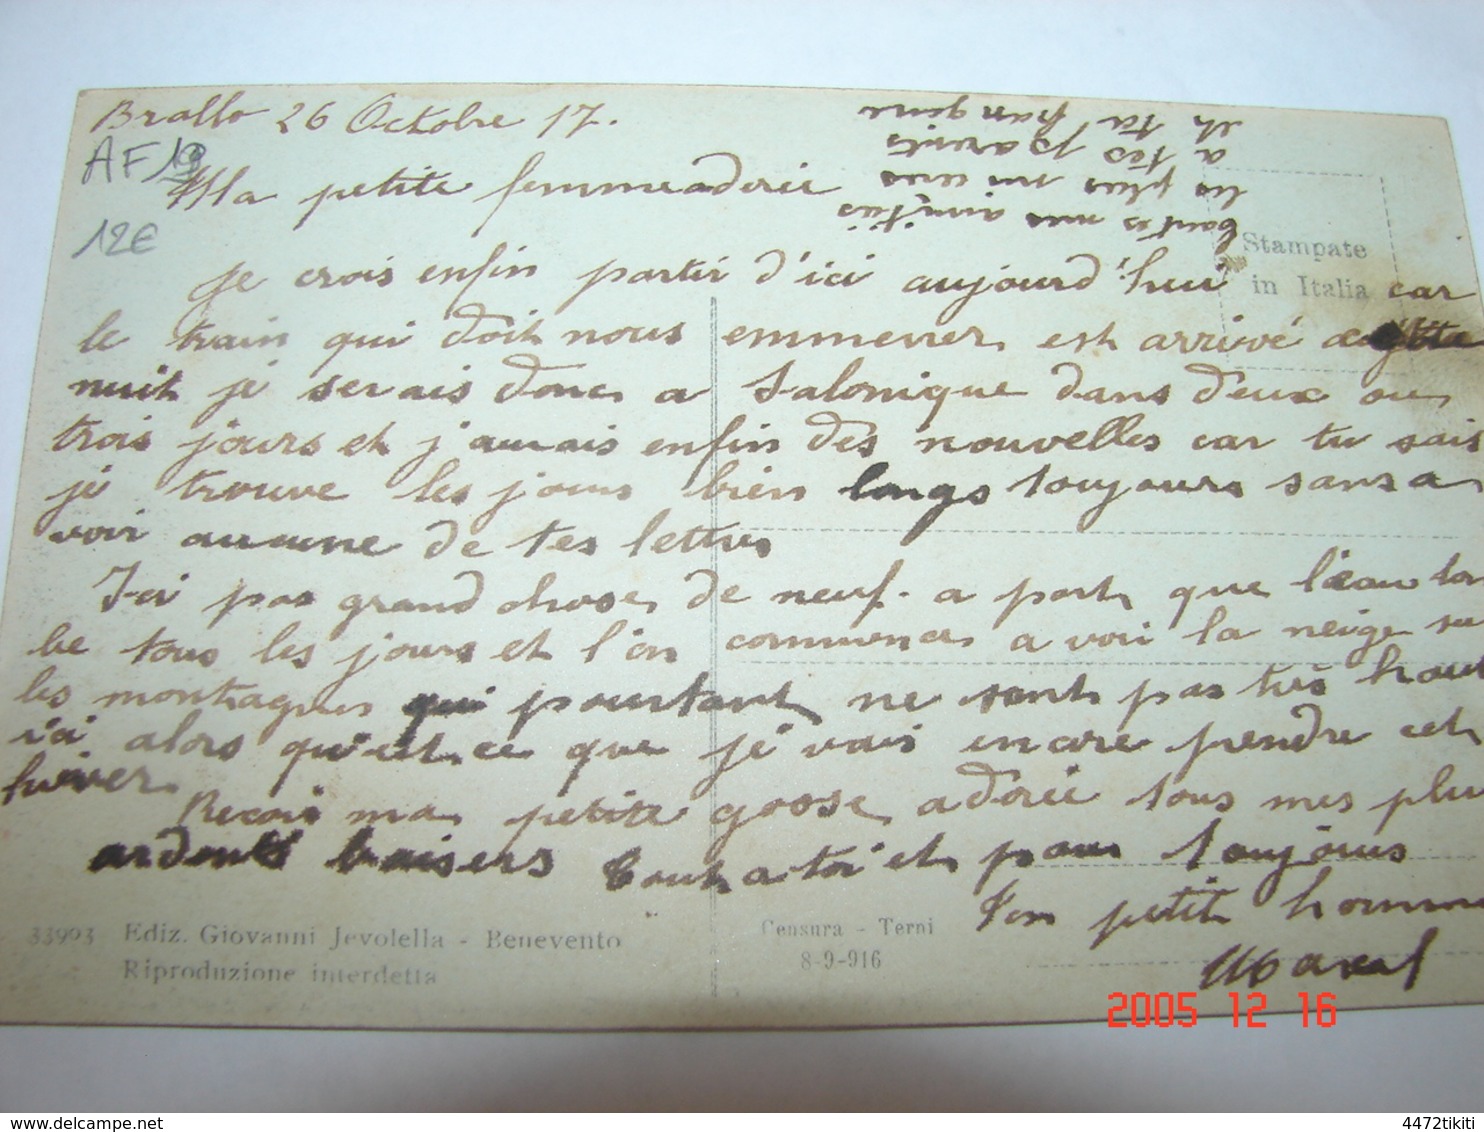 Brallo 26 Octobre 17.
AF19
Ma petite femme adorée
12€
toutes mes amitiés
les plus
a tes parents
et ta frangine
Stampate
in Italia
je crois enfin partir d'ici aujourd'hui car
le train qui doit nous emmener est arrivé cette
nuit je serais donc a Salonique dans deux ou
trois jours et j'aurais enfin des nouvelles car tu sais
je trouve les jours bien longs toujours sans a
voir aucune de tes lettres
J-ai pas grand chose de neuf. a part que l'eau tom
be tous les jours et l'on commence a voir la neige su
les montagnes qui pourtant ne sont pas très haut
ici alors qu'est-ce que je vais encore prendre cet
hiver.
Recois ma petite gosse adorée tous mes plu
ardents baisers tout a toi et pour toujours
Ton petit homme
Marcel
33993 Ediz. Giovanni Jevolella - Benevento
Riproduzione interdetta
Censura - Terni
8-9-916
2005 12 16
www.delcampe.net
4472tikiti